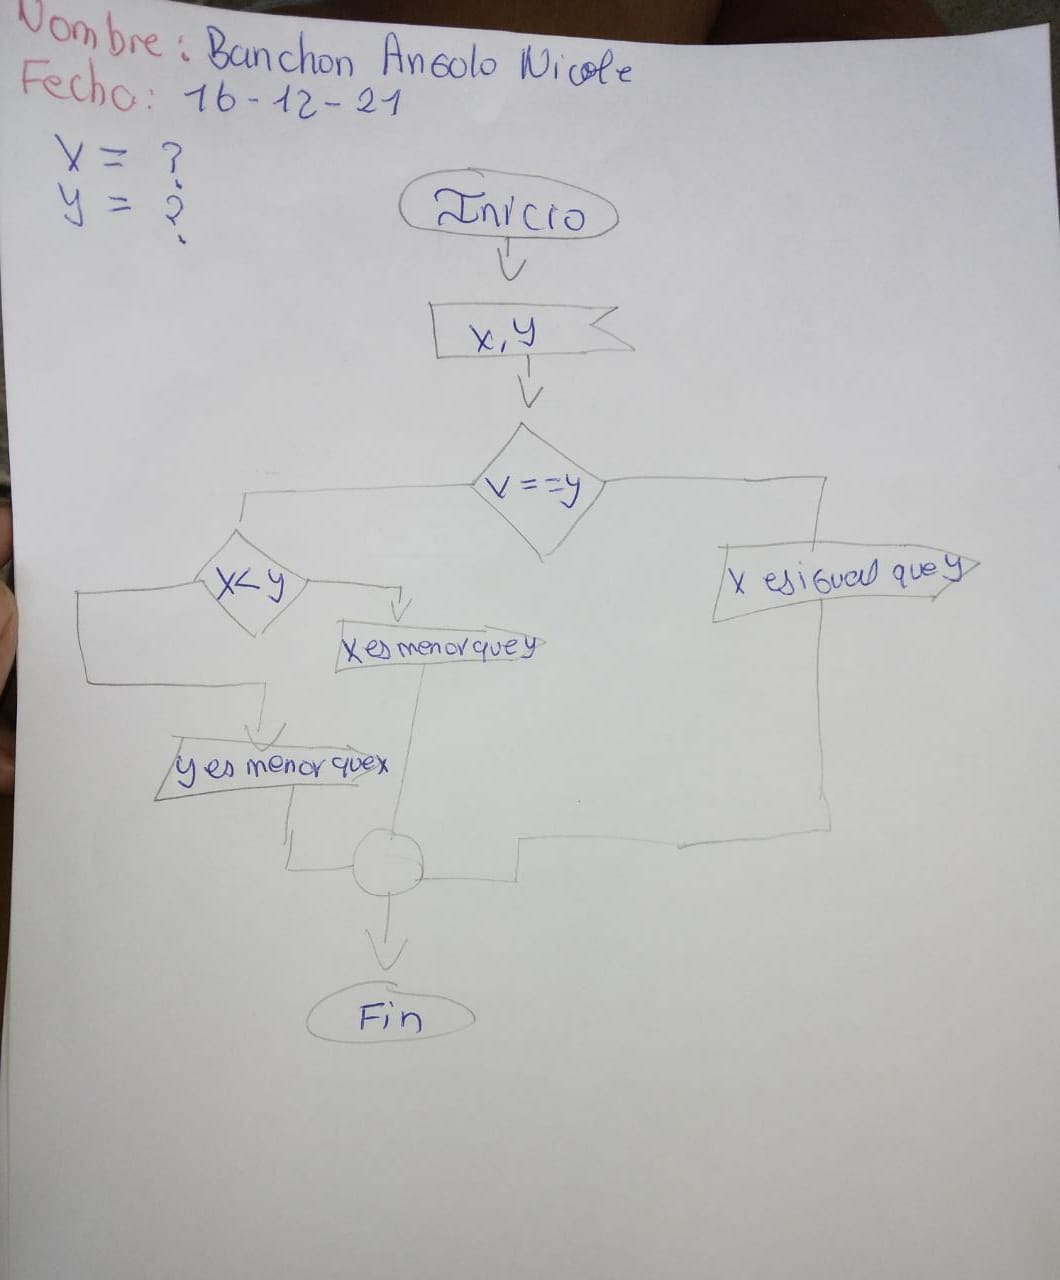 Nombre: Banchon Angolo Nicole
Fecha: 16-12-21
x = ?
y = ?
Inicio
x, y
x == y
x < y
x es igual que y
x es menor que y
y es menor que x
Fin